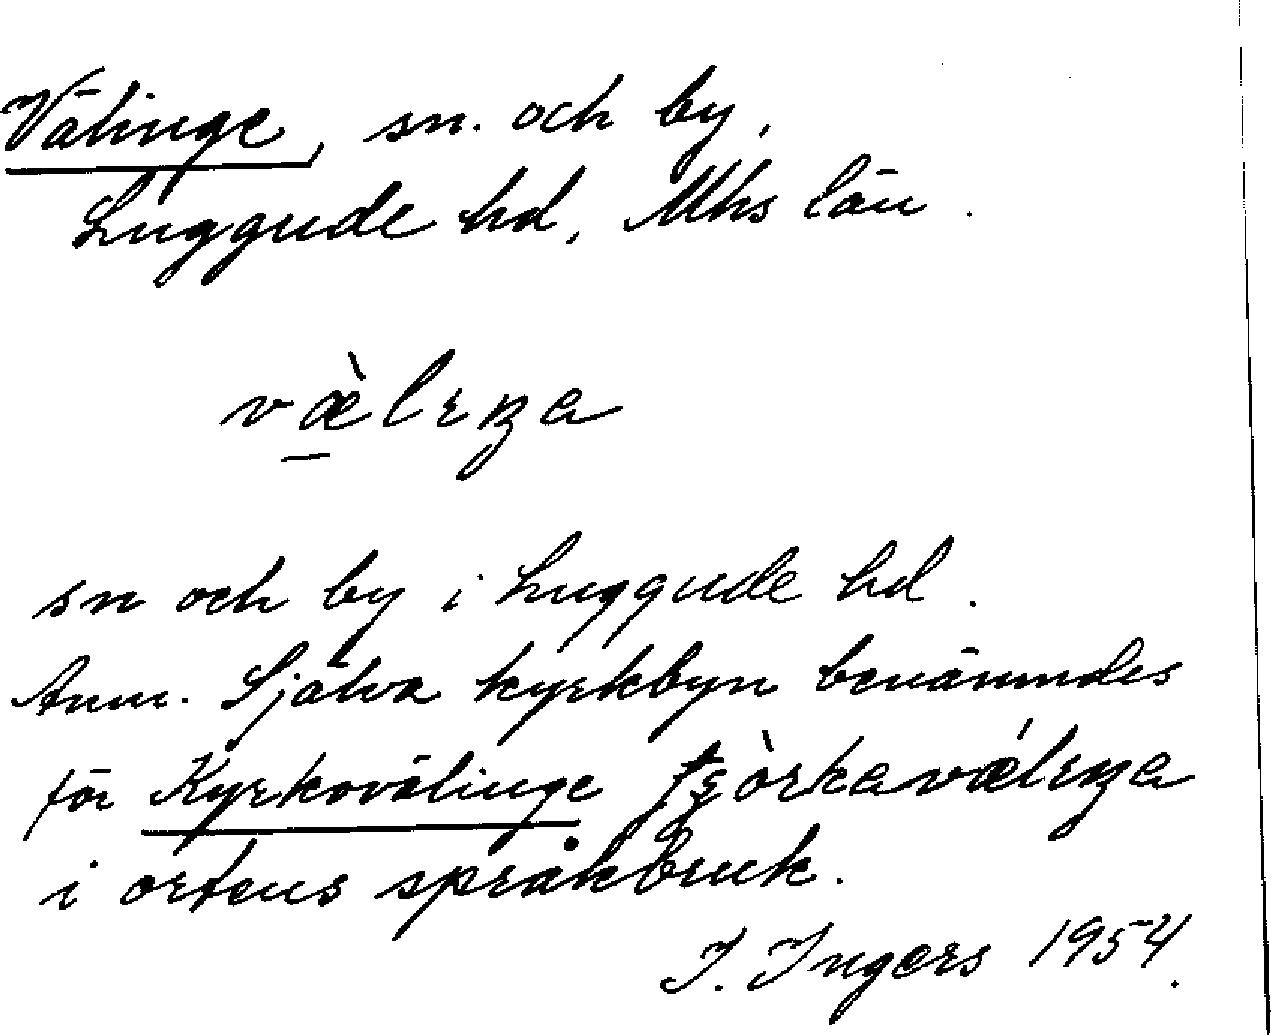 Välinge, sn. och by,
Luggude hd, Mhs län.
væ̀lıŋa
sn och by i Luggude hd.
Anm. Själva kyrkbyn benämndes
för Kyrkovälinge
i ortens språkbruk.
I. Ingers 1954.